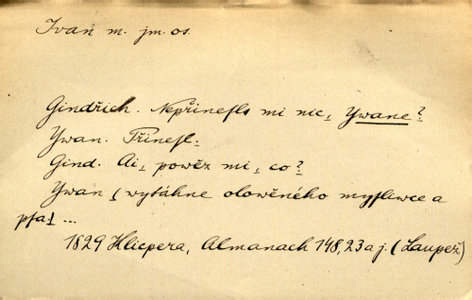 Ivan m. jm. os.
Gindřich. Nepřinesls mi nic, Ywane?
Ywan. Přinesl.
Gind. Ai, powěz mi, co?
Ywan (wytáhne olowěného mysliwce a
psa) ...
1829 Klicpera, Almanach 148,23 a j. (Laupež)